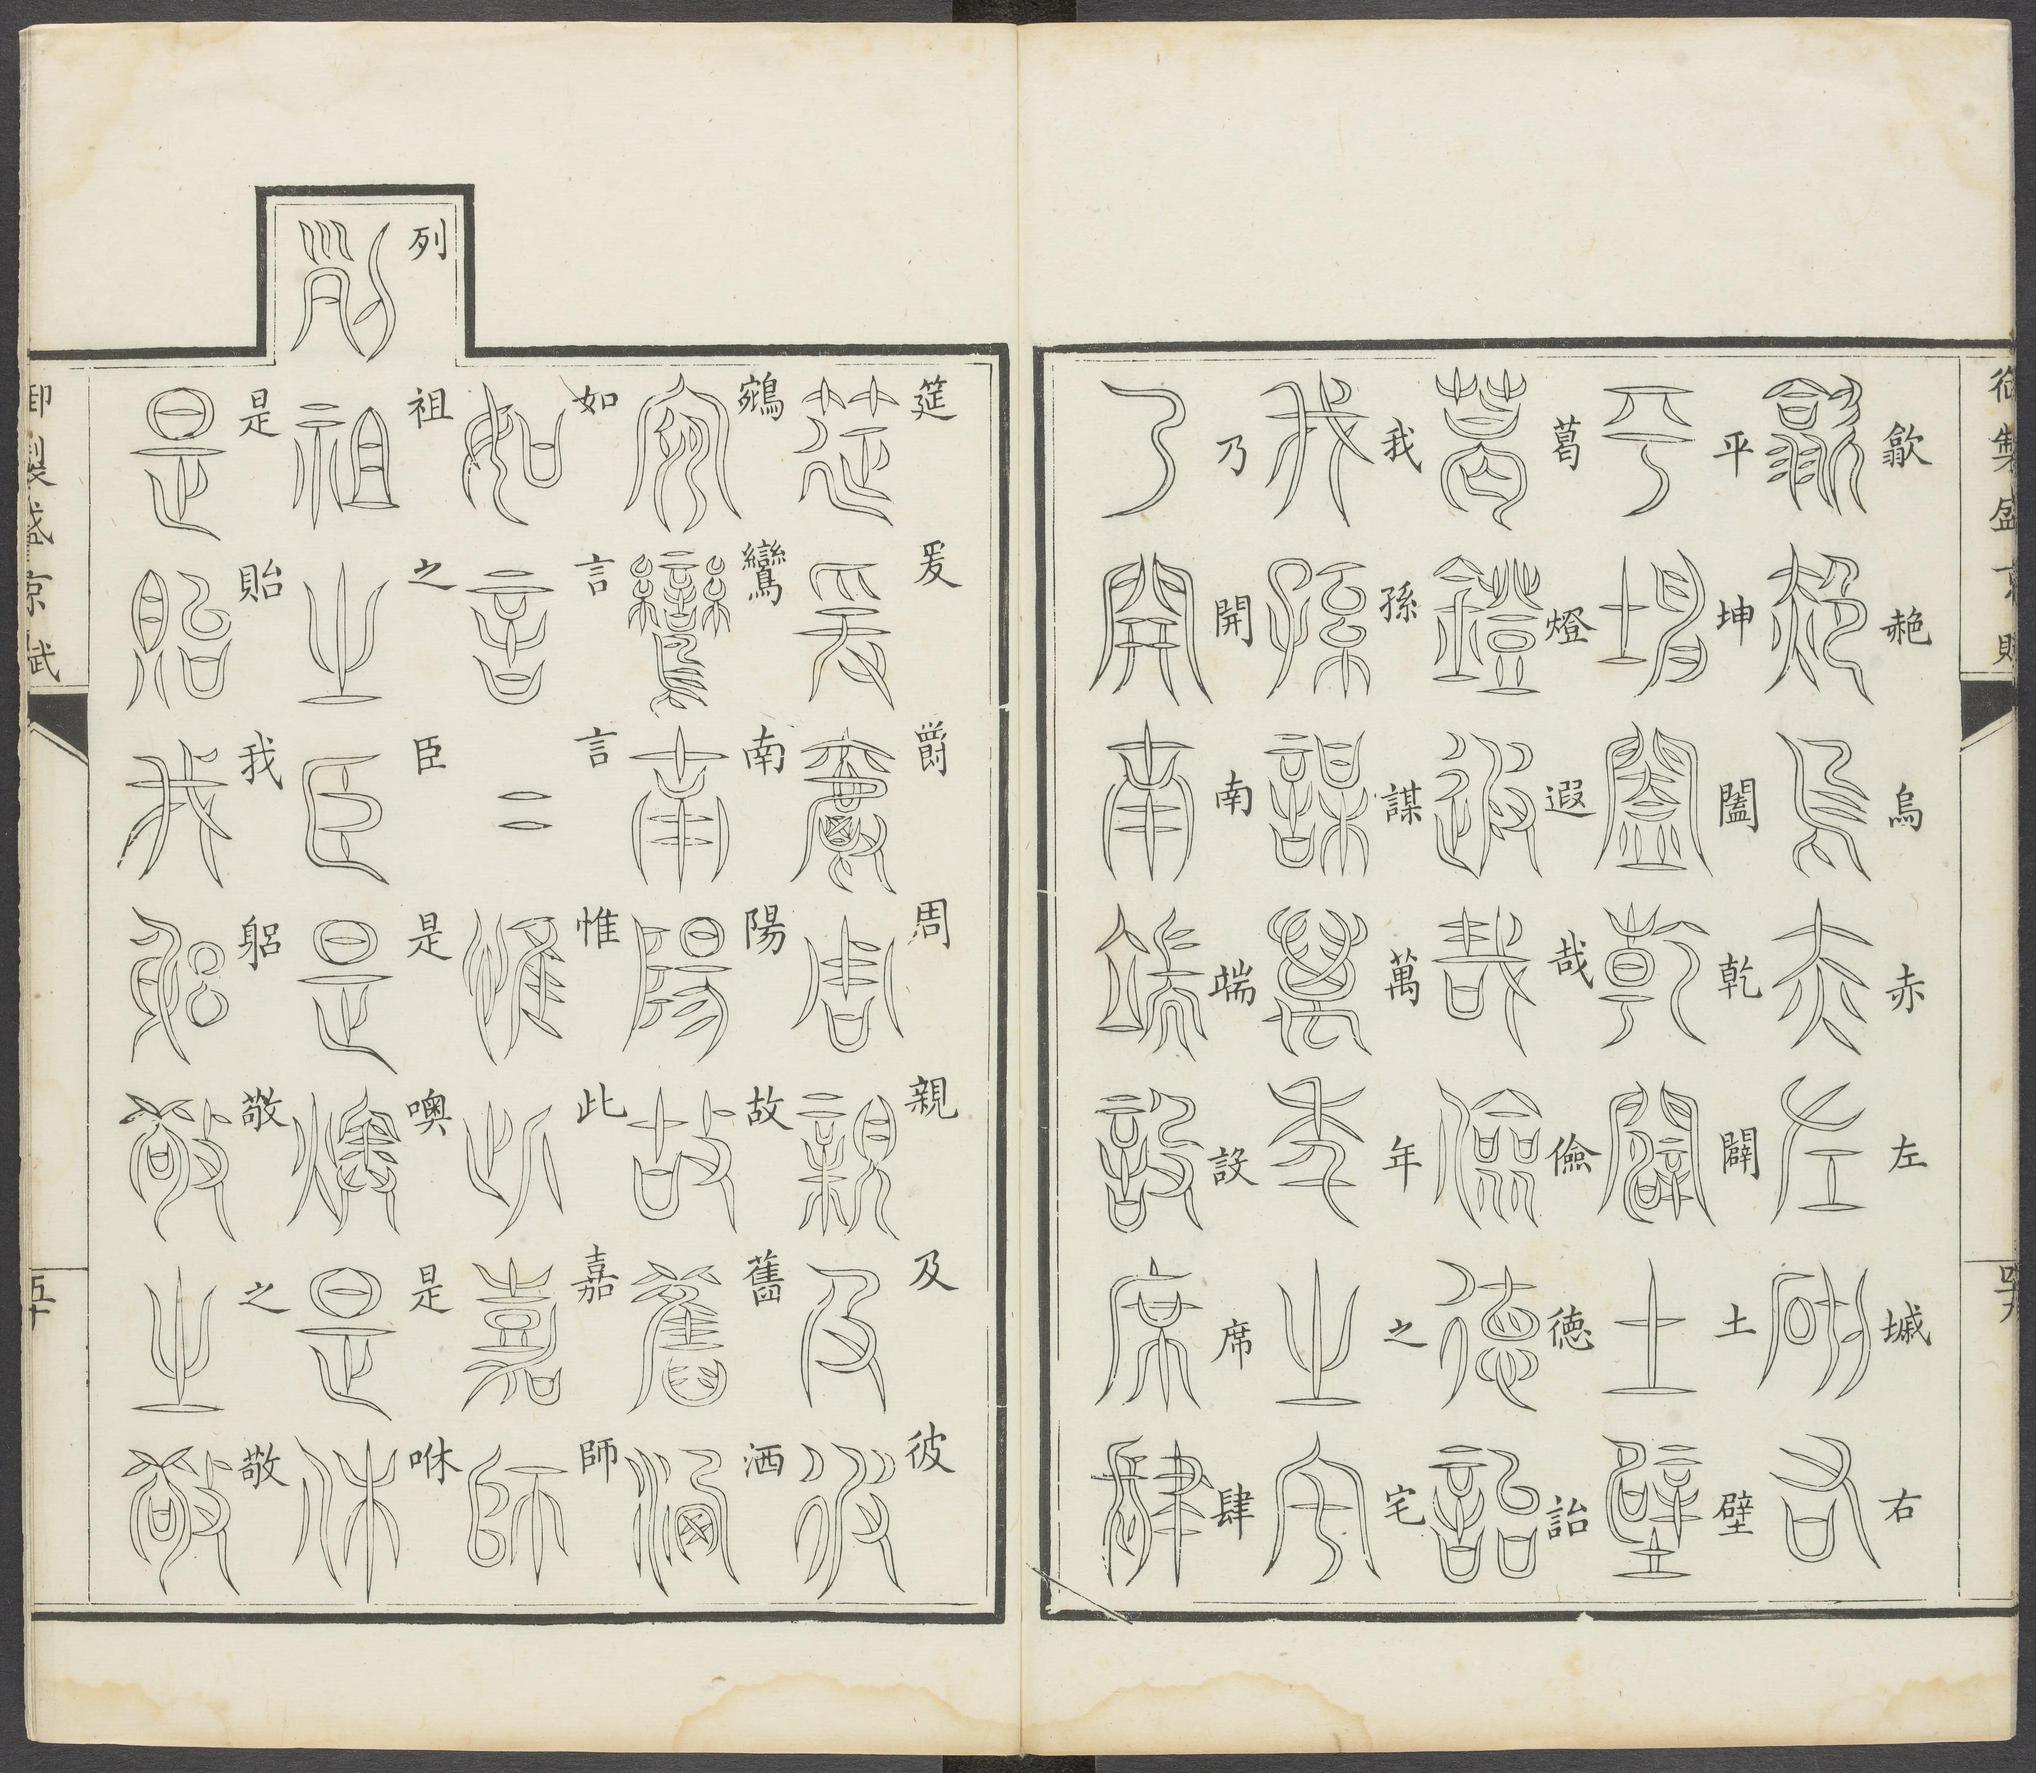 御製盛京賦
四十九
歙赩烏赤左墄右
平坤闔乾闢土壁
葛燈遐哉儉德詒
我孫謀萬年之宅
乃開南端設席肆
筵爰爵周親及彼
鵷鸞南陽故舊洒
如言言惟此嘉師
列祖之臣是噢是咻
是貽我躬敬之敬
御製盛京賦
五十